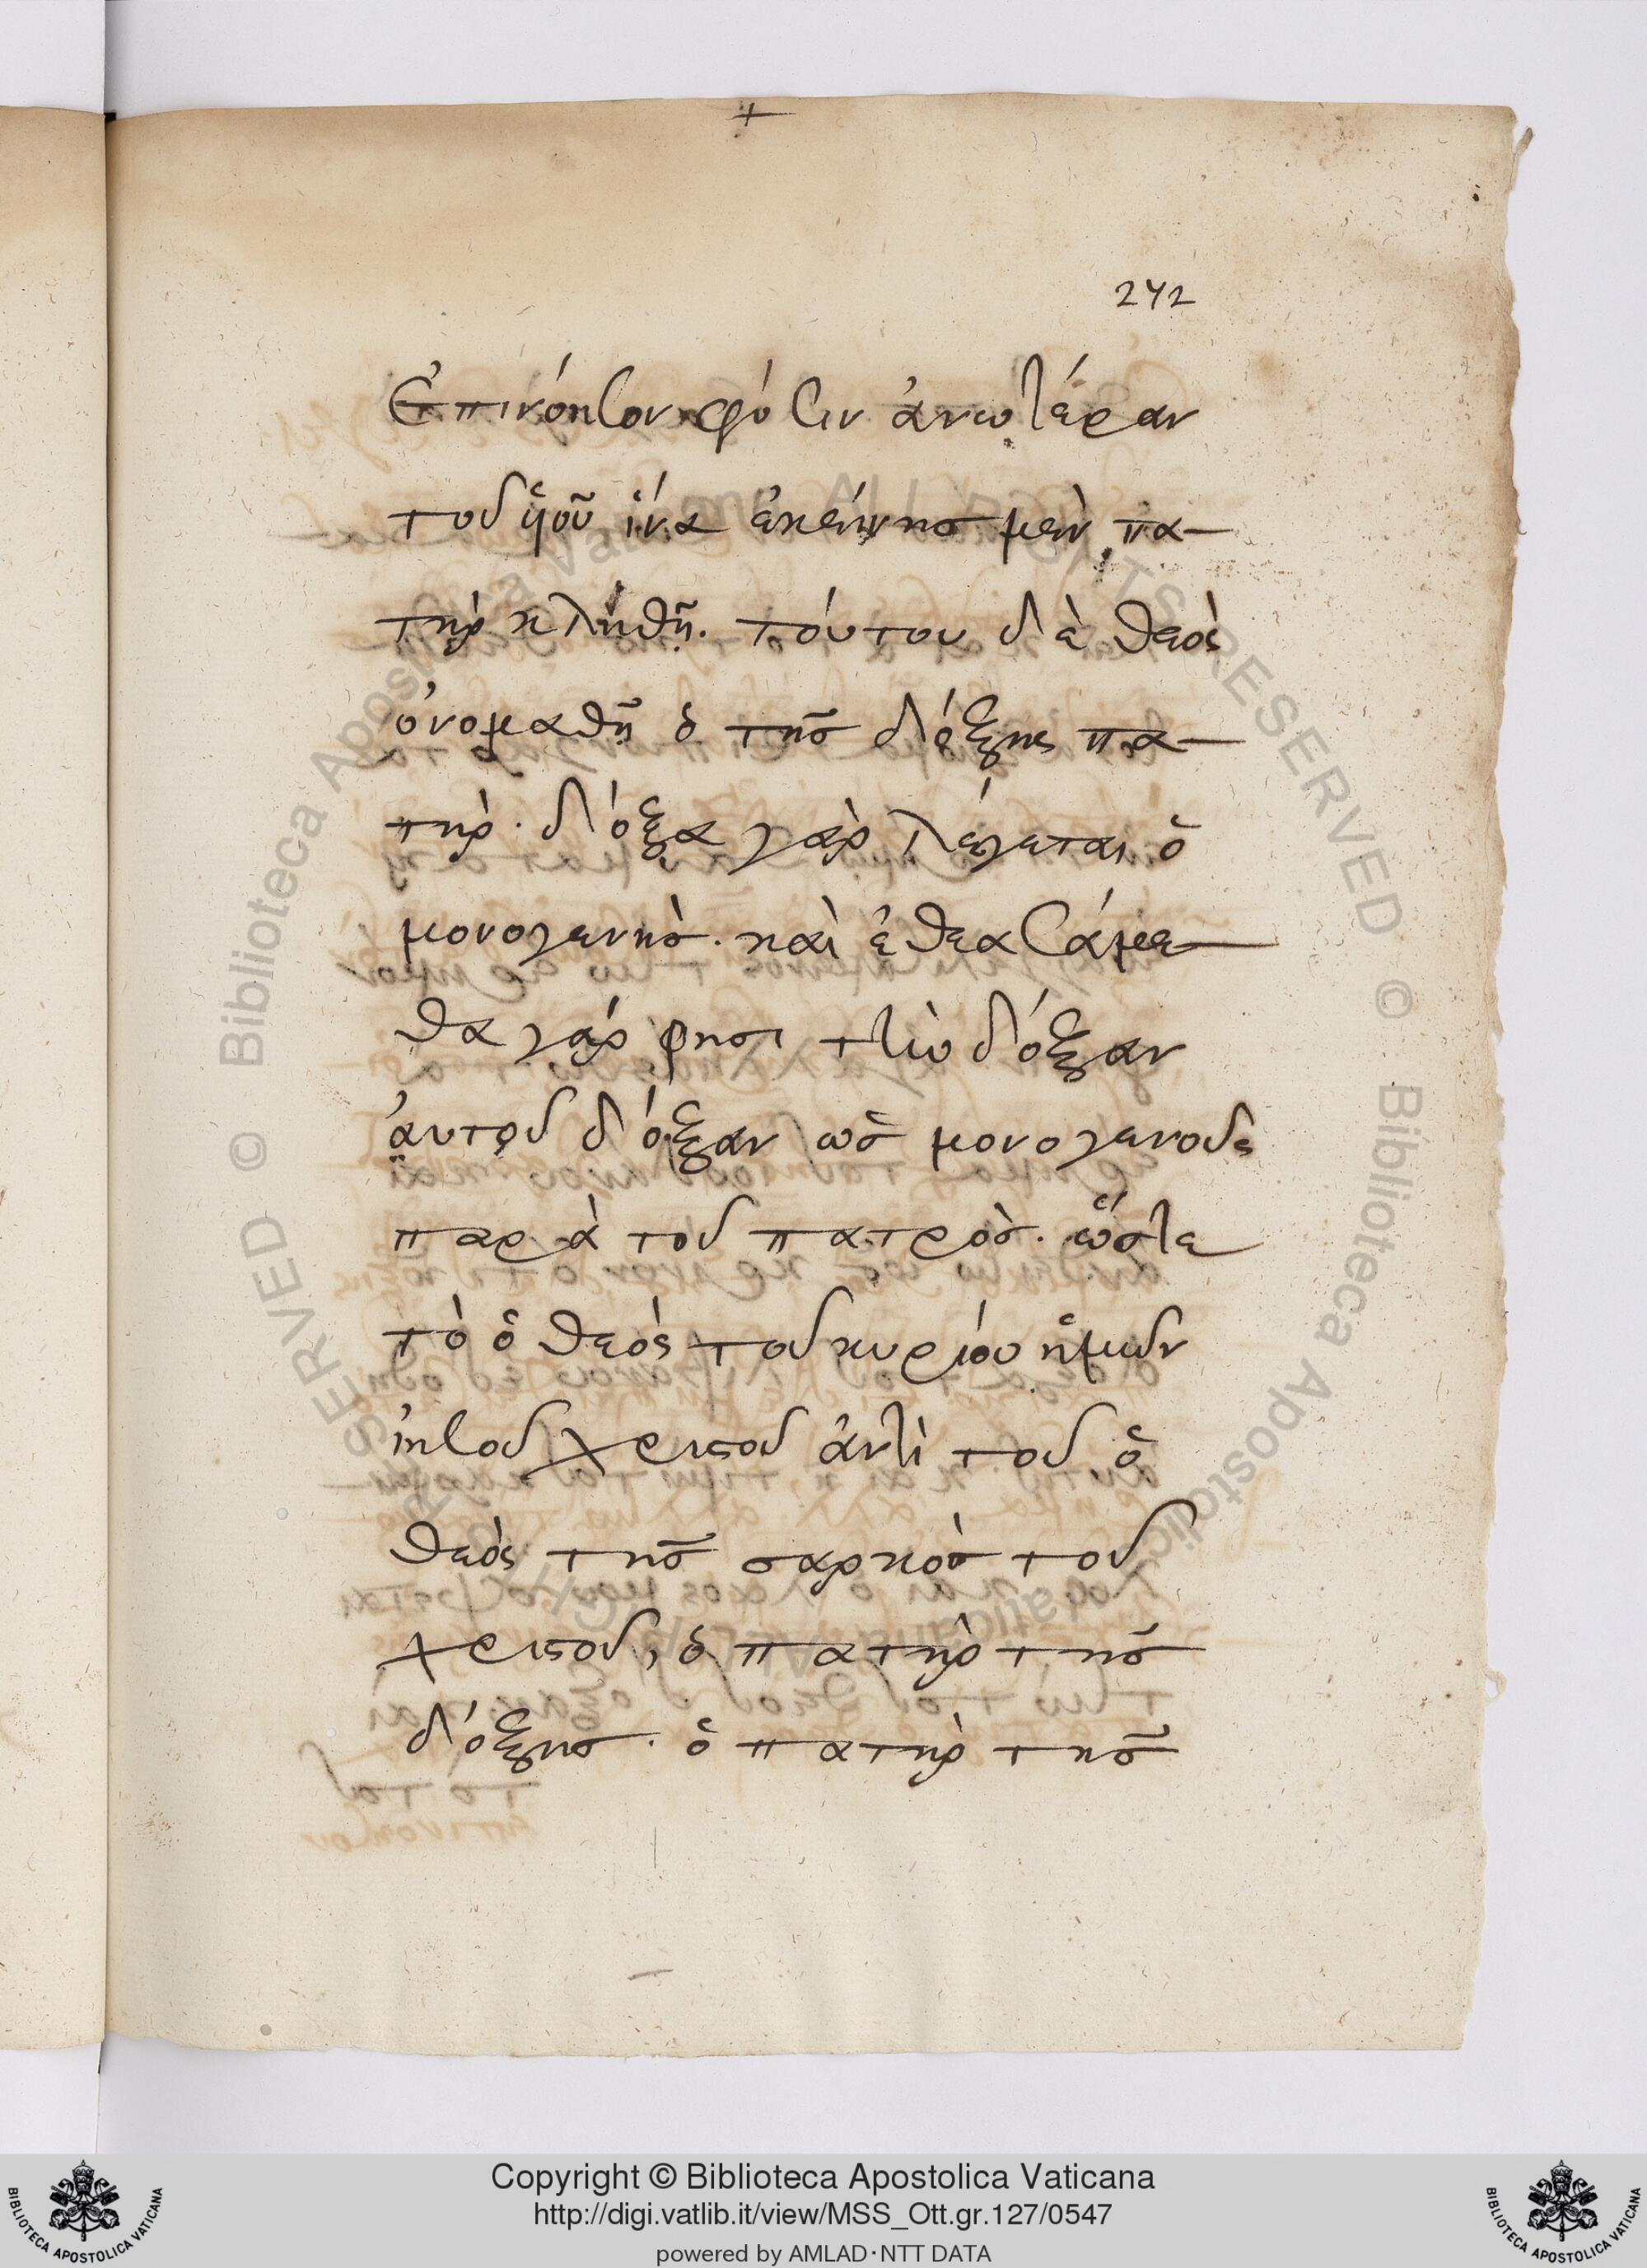 242
Ἐπινόησον φύσιν ἀνωτέραν
τοῦ ὑιοῦ ἵνα ἐκείνησ μὲν πα-
τὴρ κληθῆ. τούτου δὲ θεὸς
ὀνομαθῆ ὁ τῆσ δόξης πα-
τὴρ. δόξα γὰρ λέγεται ὁ
μονογενὴσ. καὶ ἐθεασάμε-
θα γάρ φησι τὴν δόξαν
ἀυτοῦ δόξαν ὡσ μονογενοῦς
παρὰ τοῦ πατρὸσ. ὥστε
τὸ ὁ θεὸς τοῦ κυρίου ἡμῶν
ἰησοῦ χριστοῦ ἀντὶ τοῦ ὁ
θεὸς τῆσ σαρκὸσ τοῦ
χριστοῦ, ὁ πατὴρ τῆσ
δόξησ. ὁ πατὴρ τῆσ
© Biblioteca Apostolica Vaticana ALL RIGHTS RESERVED © Biblioteca Apostolica Vaticana ALL RIGHTS RESERVED
Copyright © Biblioteca Apostolica Vaticana
http://digi.vatlib.it/view/MSS_Ott.gr.127/0547
powered by AMLAD·NTT DATA
BIBLIOTECA APOSTOLICA VATICANA
BIBLIOTECA APOSTOLICA VATICANA